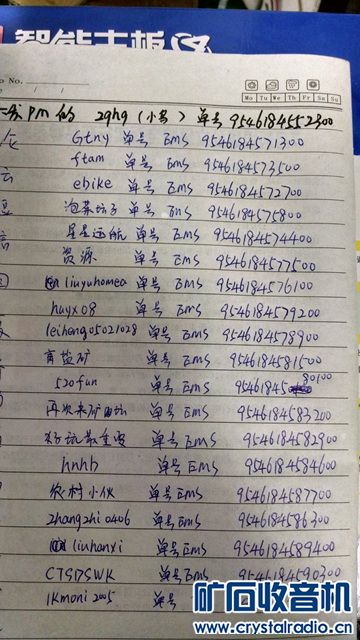 智能主板
No.
Mo Tu We Th Fr Sa Su
pm的 zghg（小 ）单号 9546184552300
Gtny 单号 EMS 9546184571300
ftam 单号 EMS 9546184573500
ebike 单号 EMS 9546184572700
泡菜坛子 单号 EMS 9546184575800
星星远航 单号 EMS 9546184574400
资源 单号 EMS 9546184577500
liuyuhomea 单号 EMS 9546184576100
huyx08 单号 EMS 9546184579200
leiheng05021028 单号 EMS 9546184578900
育盐矿 单号 EMS 9546184581500
520fun 单号 EMS 95461845 80100
再次来矿 单号 EMS 9546184583200
好玩最重要 单号 EMS 9546184582900
hnhb 单号 EMS 9546184584600
农村小伙 单号 EMS 9546184587700
zhangzhi0406 单号 EMS 9546184586300
liuhanyi 单号 EMS 9546184589400
CTSDSWK 单号 EMS 9546184590300
lkmoni2005 单号
矿石收音机
www.crystalradio.cn